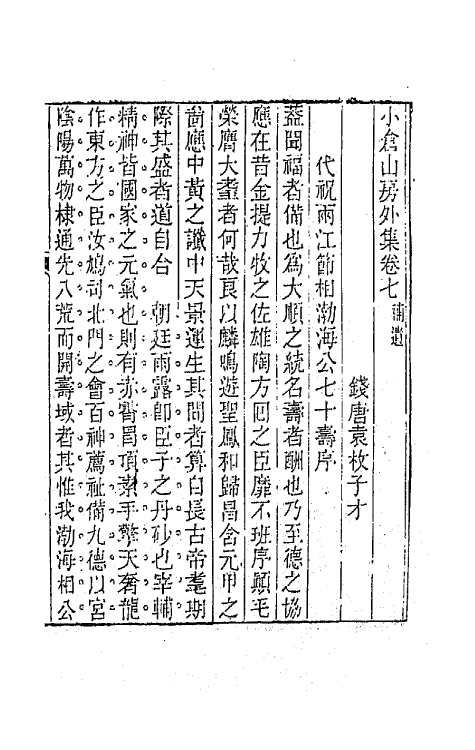 小倉山房外集卷七 補遺
錢唐袁枚子才
代祝兩江節相渤海公七十壽序
蓋聞福者備也爲大順之統名壽者酬也乃至德之協
應在昔金提力牧之佐雄陶方回之臣靡不班序顛毛
榮膺大耋者何哉良以麟鳴遊聖鳳和歸昌含元甲之
茵應中黃之讖中天景運生其間者算自長古帝耄期
際其盛者道自合 朝廷雨露卽臣子之丹砂也宰輔
精神皆國家之元氣也則有赤霄昌項素手擎天奢龍
作東方之臣汝鳩司北門之會百神薦祉備九德以宮
陰陽萬物棣通先八荒而開壽域者其惟我渤海相公